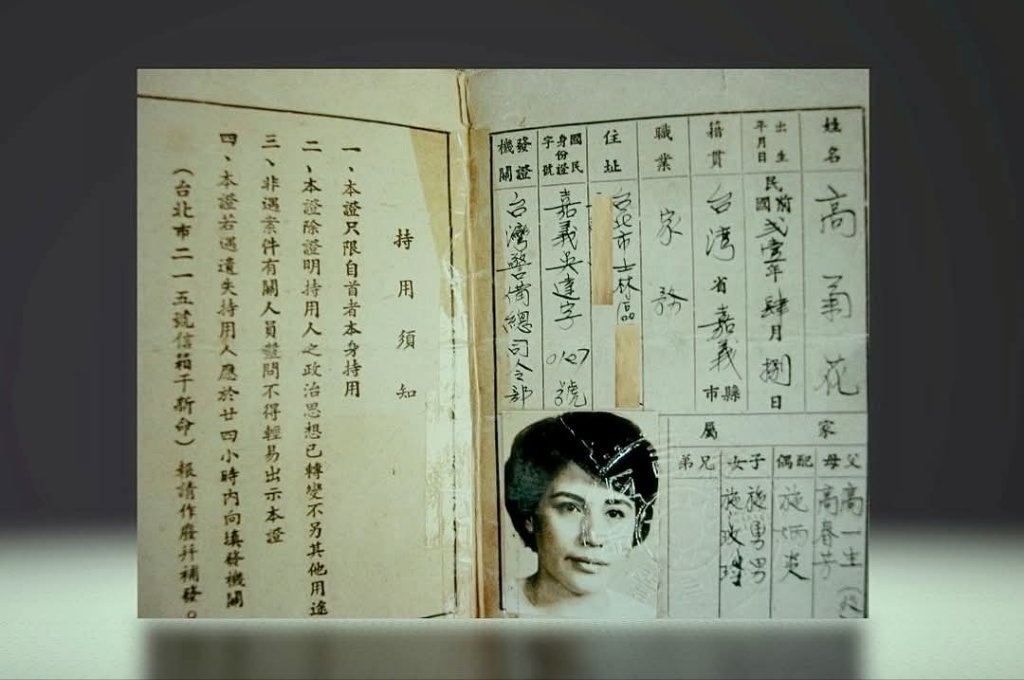 姓名 高菊花
出生年月日 民國前弍壹年肆月捌日
籍貫 台灣省嘉義縣市
職業 家務
住址 台北市士林區
國民身份證字號 嘉義吳達字0127號
發證機關 台灣警備總司令部
家屬
父母 高一生
高春芳
配偶 施炳炎
子女 施勇男
兄弟
持用須知
一、本證只限自首者本身持用
二、本證除證明持用人之政治思想已轉變不另其他用途
三、非遇案件有關人員盤問不得輕易出示本證
四、本證若遇遺失持用人應於廿四小時內向填發機關
（台北市二一五號信箱于新命）報請作廢并補發。